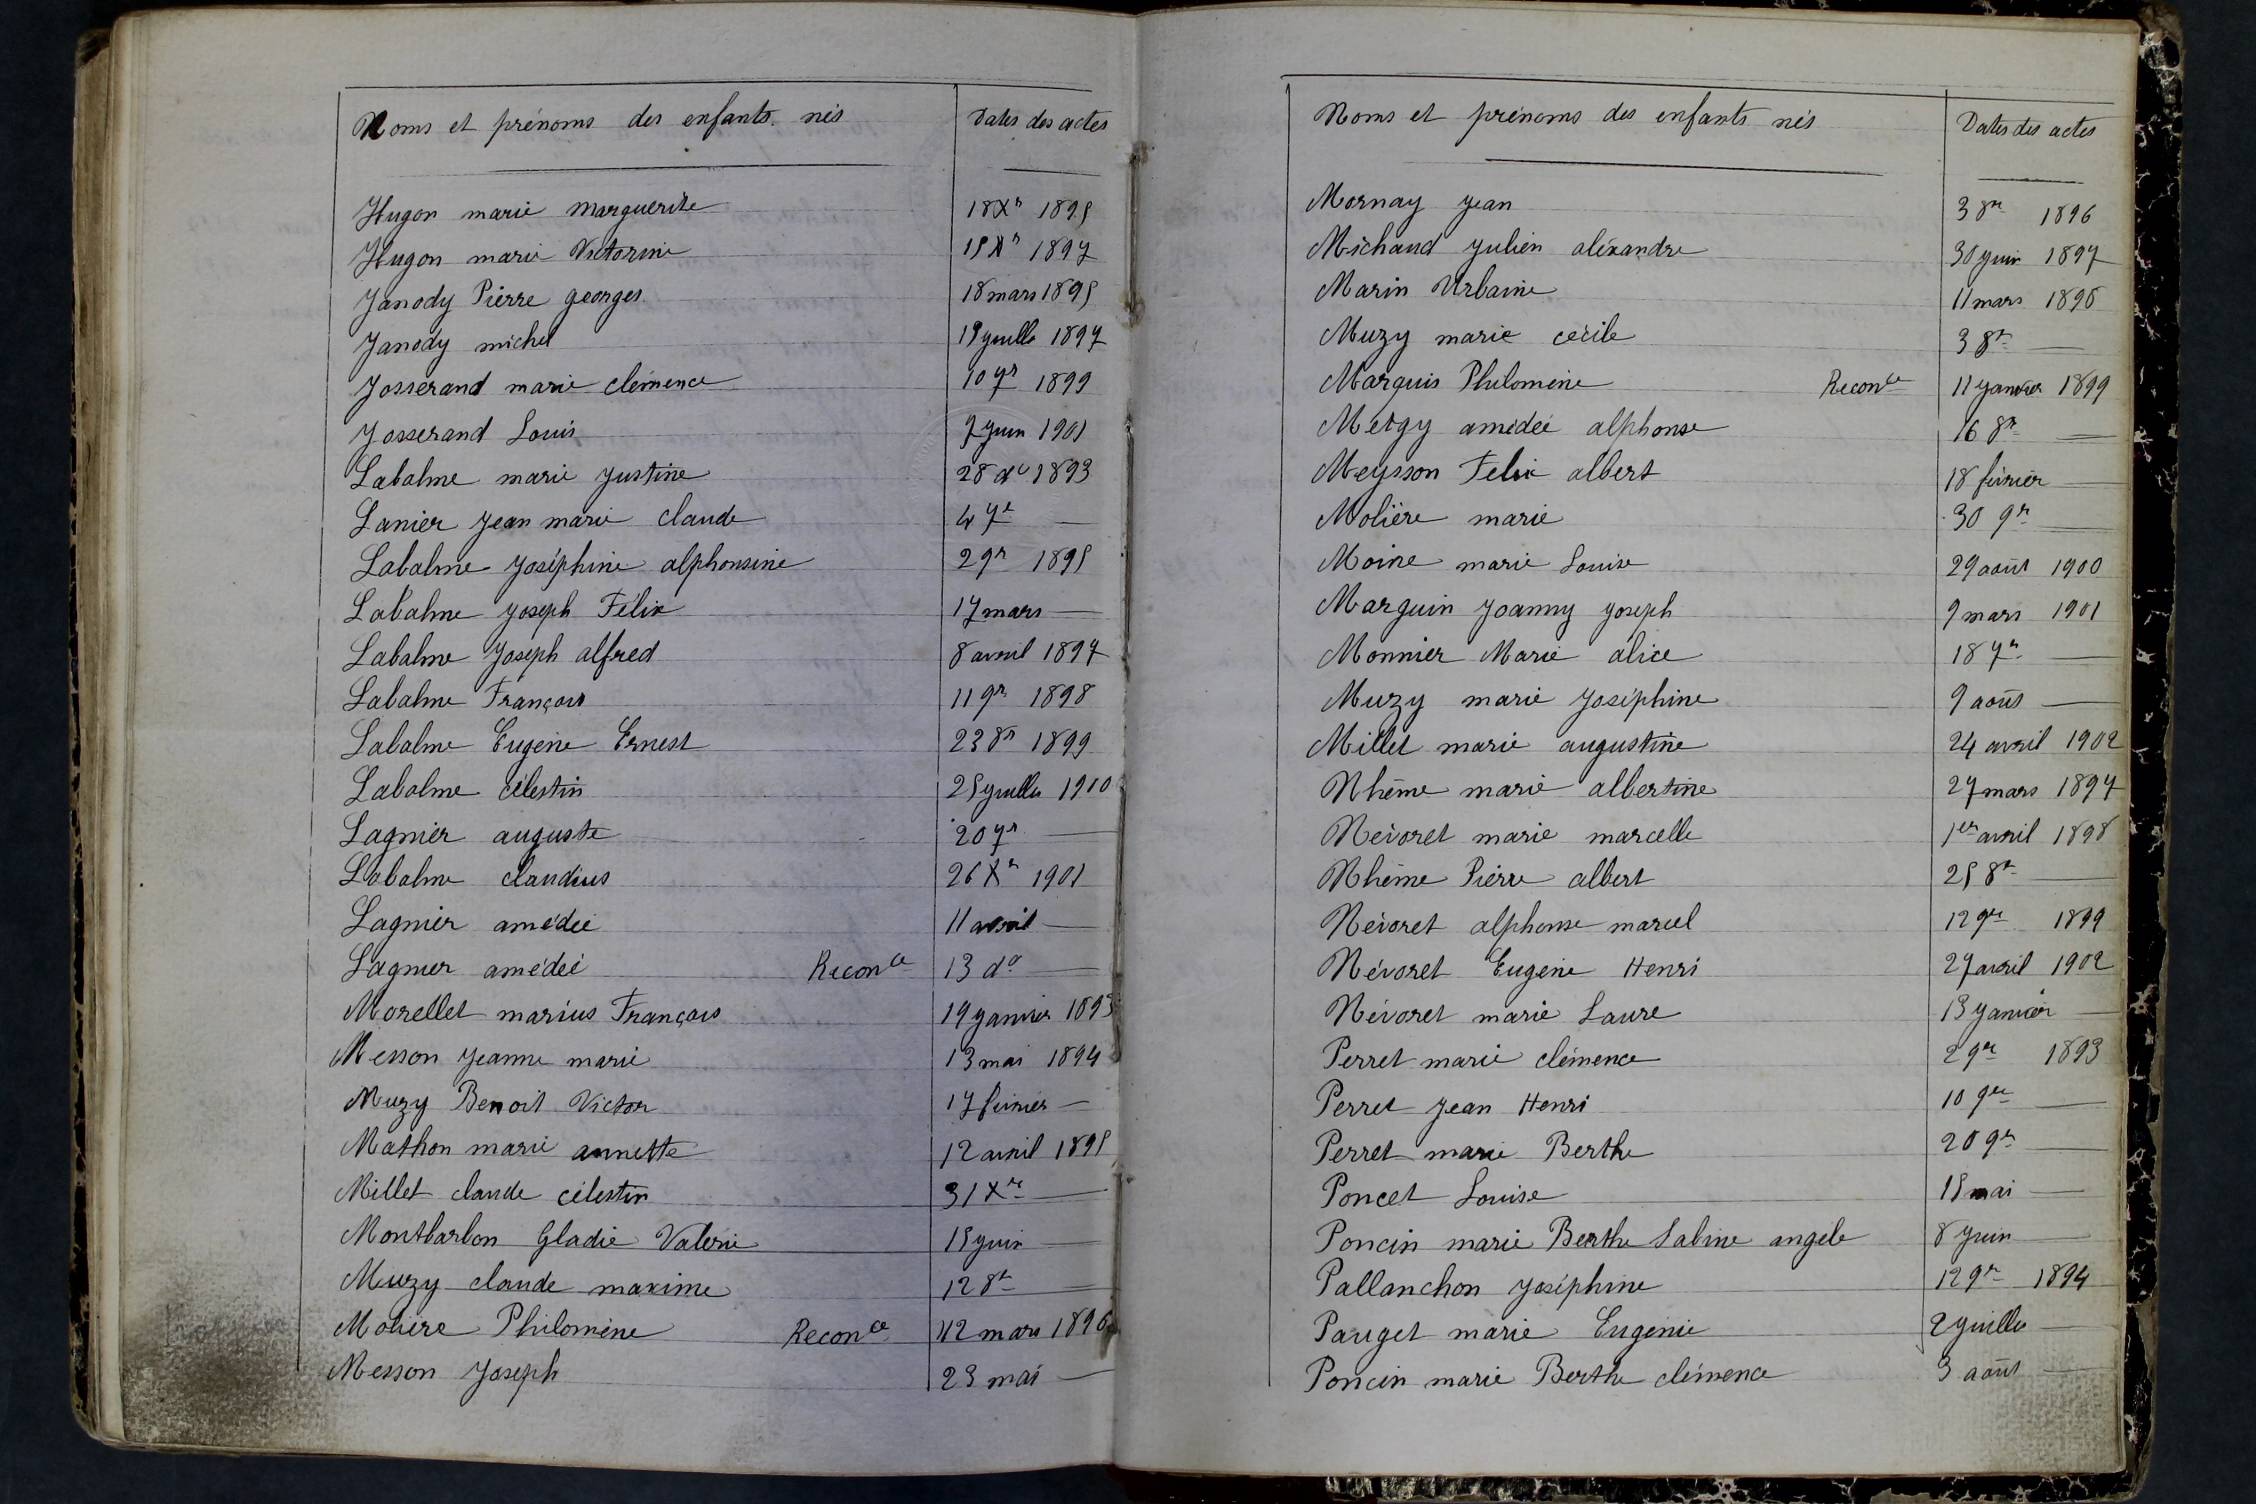 Noms et prénoms des enfants nés Dates des actes
Hugon marie Marguerite 18 Xr 1895
Hugon marie Victorine 15 Xr 1897
Janody Pierre georges 18 mars 1895
Janody michel 19 juillet 1897
Josserand marie clémence 10 7r 1899
Josserand Louis 7 juin 1901
Labalme marie justine 28 do 1893
Lanier jean marie claude 4 7e —
Labalme joséphine alphonsine 2 9r 1895
Labalme joseph Félix 17 mars —
Labalme Joseph alfred 8 avril 1897
Labalme François 11 9r 1898
Labalme Eugène Ernest 23 8r 1899
Labalme célestin 25 juillet 1900
Lagnier auguste 20 7r —
Labalme claudius 26 Xr 1901
Lagnier amédée 11 avril —
Lagnier amédée Reconce 13 do —
Morellet marius François 19 janvier 1893
Messon jeanne marie 13 mai 1894
Muzy Benoit Victor 17 février —
Mathon marie annette 12 avril 1895
Millet claude célestin 31 Xre —
Montbarbon Gladie Valérie 15 juin —
Muzy claude maxime 12 8r —
Molière Philomène Reconce 12 mars 1896
Messon Joseph 23 mai —
Noms et prénoms des enfants nés Dates des actes
Mornay jean 3 8re 1896
Michaud julien aléxandre 30 juin 1897
Marin Urbaine 11 mars 1898
Muzy marie cécile 3 8r —
Marquis Philomène Reconce 11 janvier 1899
Metgy amédée alphonse 16 8r —
Meysson Felix albert 18 février —
Molière marie 30 9r —
Moine marie Louise 29 août 1900
Marguin joanny joseph 9 mars 1901
Monnier Marie alice 18 7r —
Muzy marie joséphine 9 août —
Millet marie augustine 24 avril 1902
Nhême marie albertine 27 mars 1897
Névoret marie marcelle 1er avril 1898
Nhême Pierre albert 25 8r —
Névoret alphonse marcel 12 9re 1899
Névoret Eugène Henri 27 avril 1902
Névoret marie Laure 13 janvier —
Perret marie clémence 2 9re 1893
Perret jean Henri 10 9re —
Perret marie Berthe 20 9r —
Poncet Louise 15 mai —
Poncin marie Berthe Sabine angèle 8 juin —
Pallanchon joséphine 12 9r 1894
Pauget marie Eugénie 2 juillet —
Poncin marie Berthe clémence 3 août —